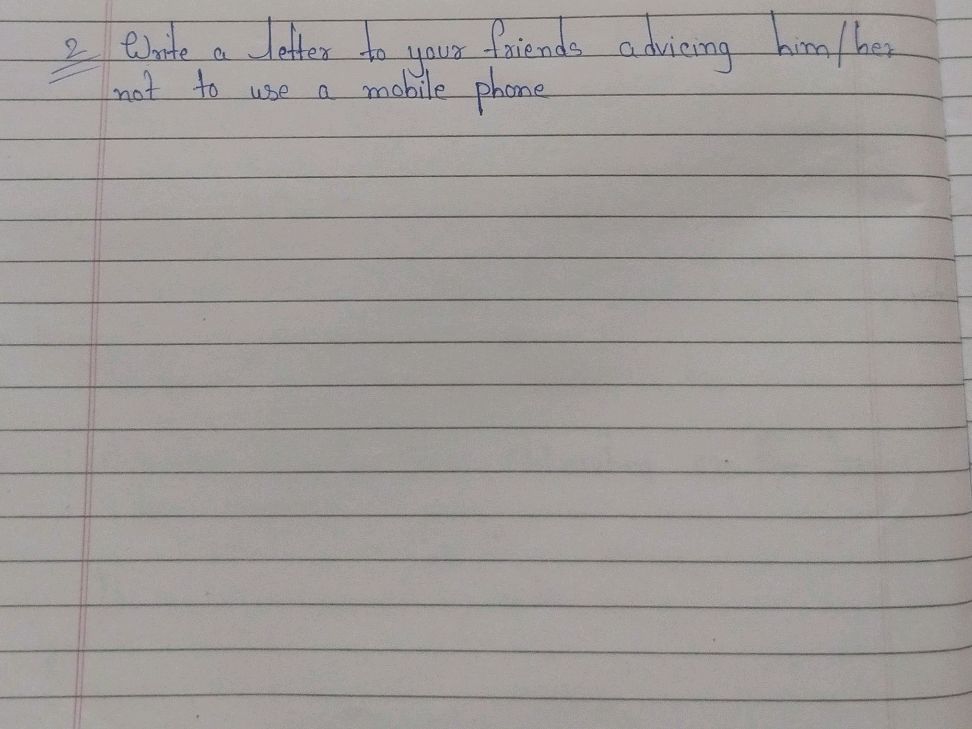 2 Write a letter to your friends advicing him/her
not to use a mobile phone